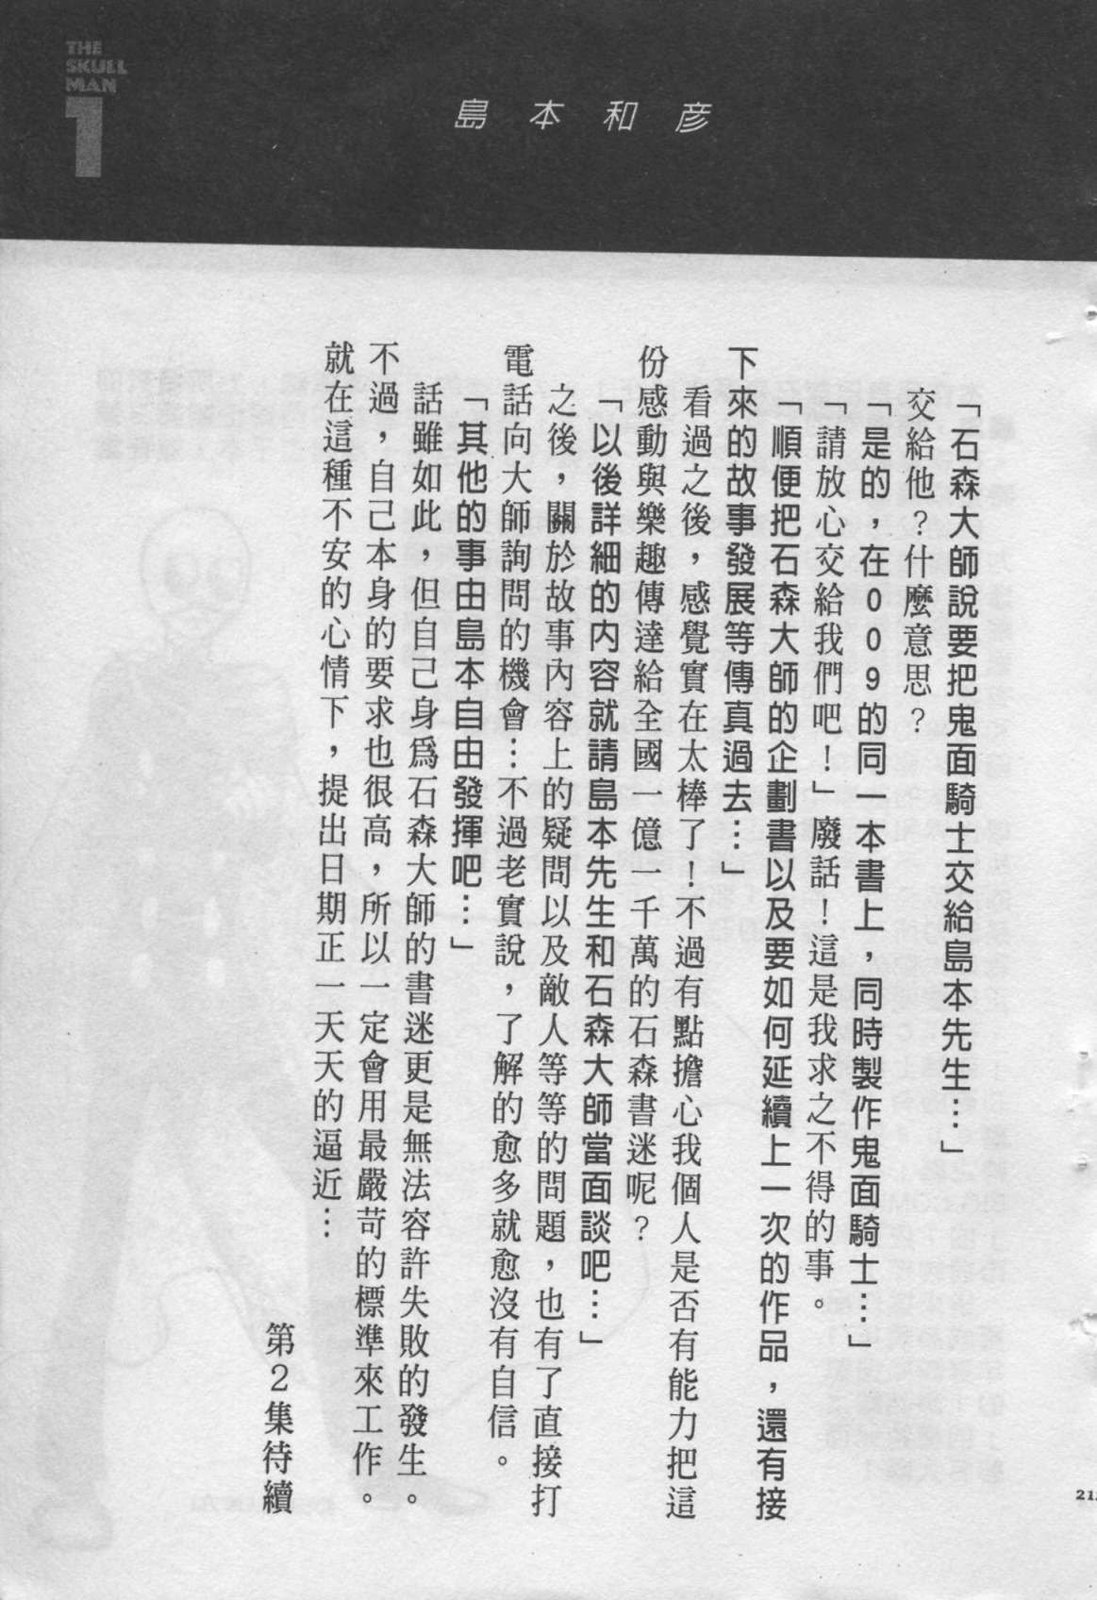 THE
SKULL
MAN
1
島本和彦
「石森大師說要把鬼面騎士交給島本先生…」
交給他？什麼意思？
「是的，在００９的同一本書上，同時製作鬼面騎士…」
「請放心交給我們吧！」廢話！這是我求之不得的事。
「順便把石森大師的企劃書以及要如何延續上一次的作品，還有接
下來的故事發展等傳真過去…」
看過之後，感覺實在太棒了！不過有點擔心我個人是否有能力把這
份感動與樂趣傳達給全國一億一千萬的石森書迷呢？
「以後詳細的內容就請島本先生和石森大師當面談吧…」
之後，關於故事內容上的疑問以及敵人等等的問題，也有了直接打
電話向大師詢問的機會…不過老實說，了解的愈多就愈沒有自信。
「其他的事由島本自由發揮吧…」
話雖如此，但自己身爲石森大師的書迷更是無法容許失敗的發生。
不過，自己本身的要求也很高，所以一定會用最嚴苛的標準來工作。
就在這種不安的心情下，提出日期正一天天的逼近…
第２集待續